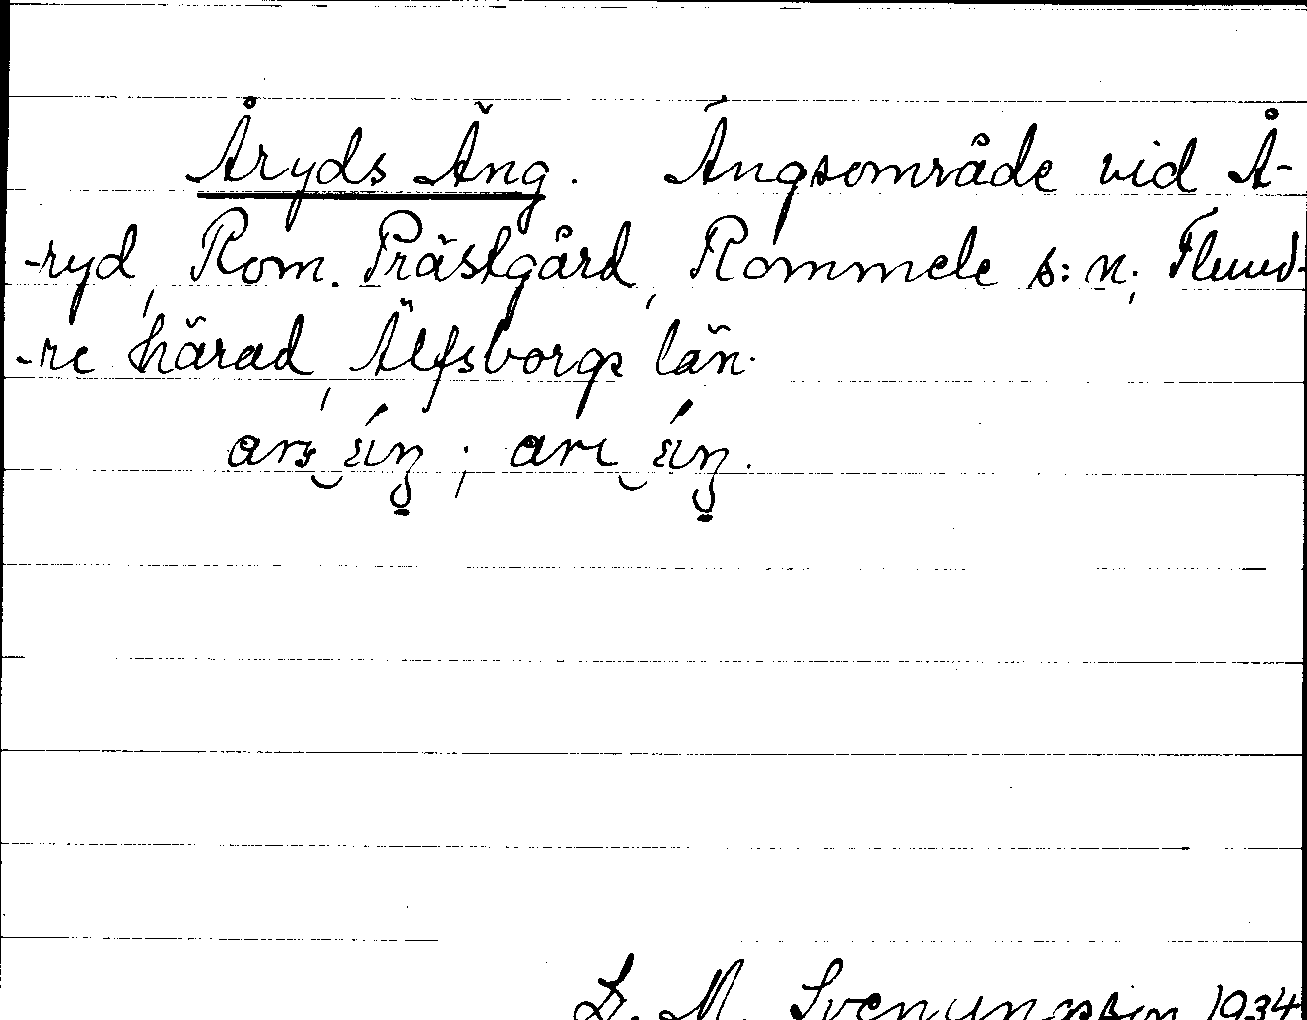 Åryds Äng. Ängsområde vid Å-
-ryd, Rom. Prästgård, Rommele s:n; Flund-
-re härad, Älfsborgs län.
M. Svenungsson 1934